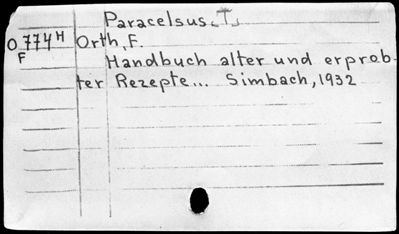 Paracelsus, T.
O 774 H Orth, F.
F
Handbuch alter und erprob-
ter Rezepte... Simbach, 1932